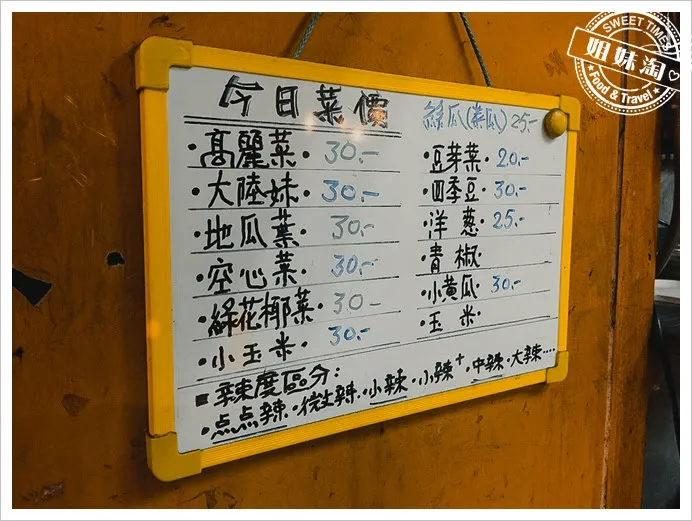 今日菜價
高麗菜・30.-
大陸妹・30.-
地瓜葉・30.-
空心菜・30.-
綠花椰菜・30-
小玉米・30.-
絲瓜(菜瓜)25.-
豆芽菜・20.-
四季豆・30.-
洋蔥・25.-
青椒・
小黃瓜・30.-
玉米・
辣度區分:
・点点辣・微辣・小辣・小辣+・中辣・大辣....
SWEET TIMES
姐妹淘
Food & Travel